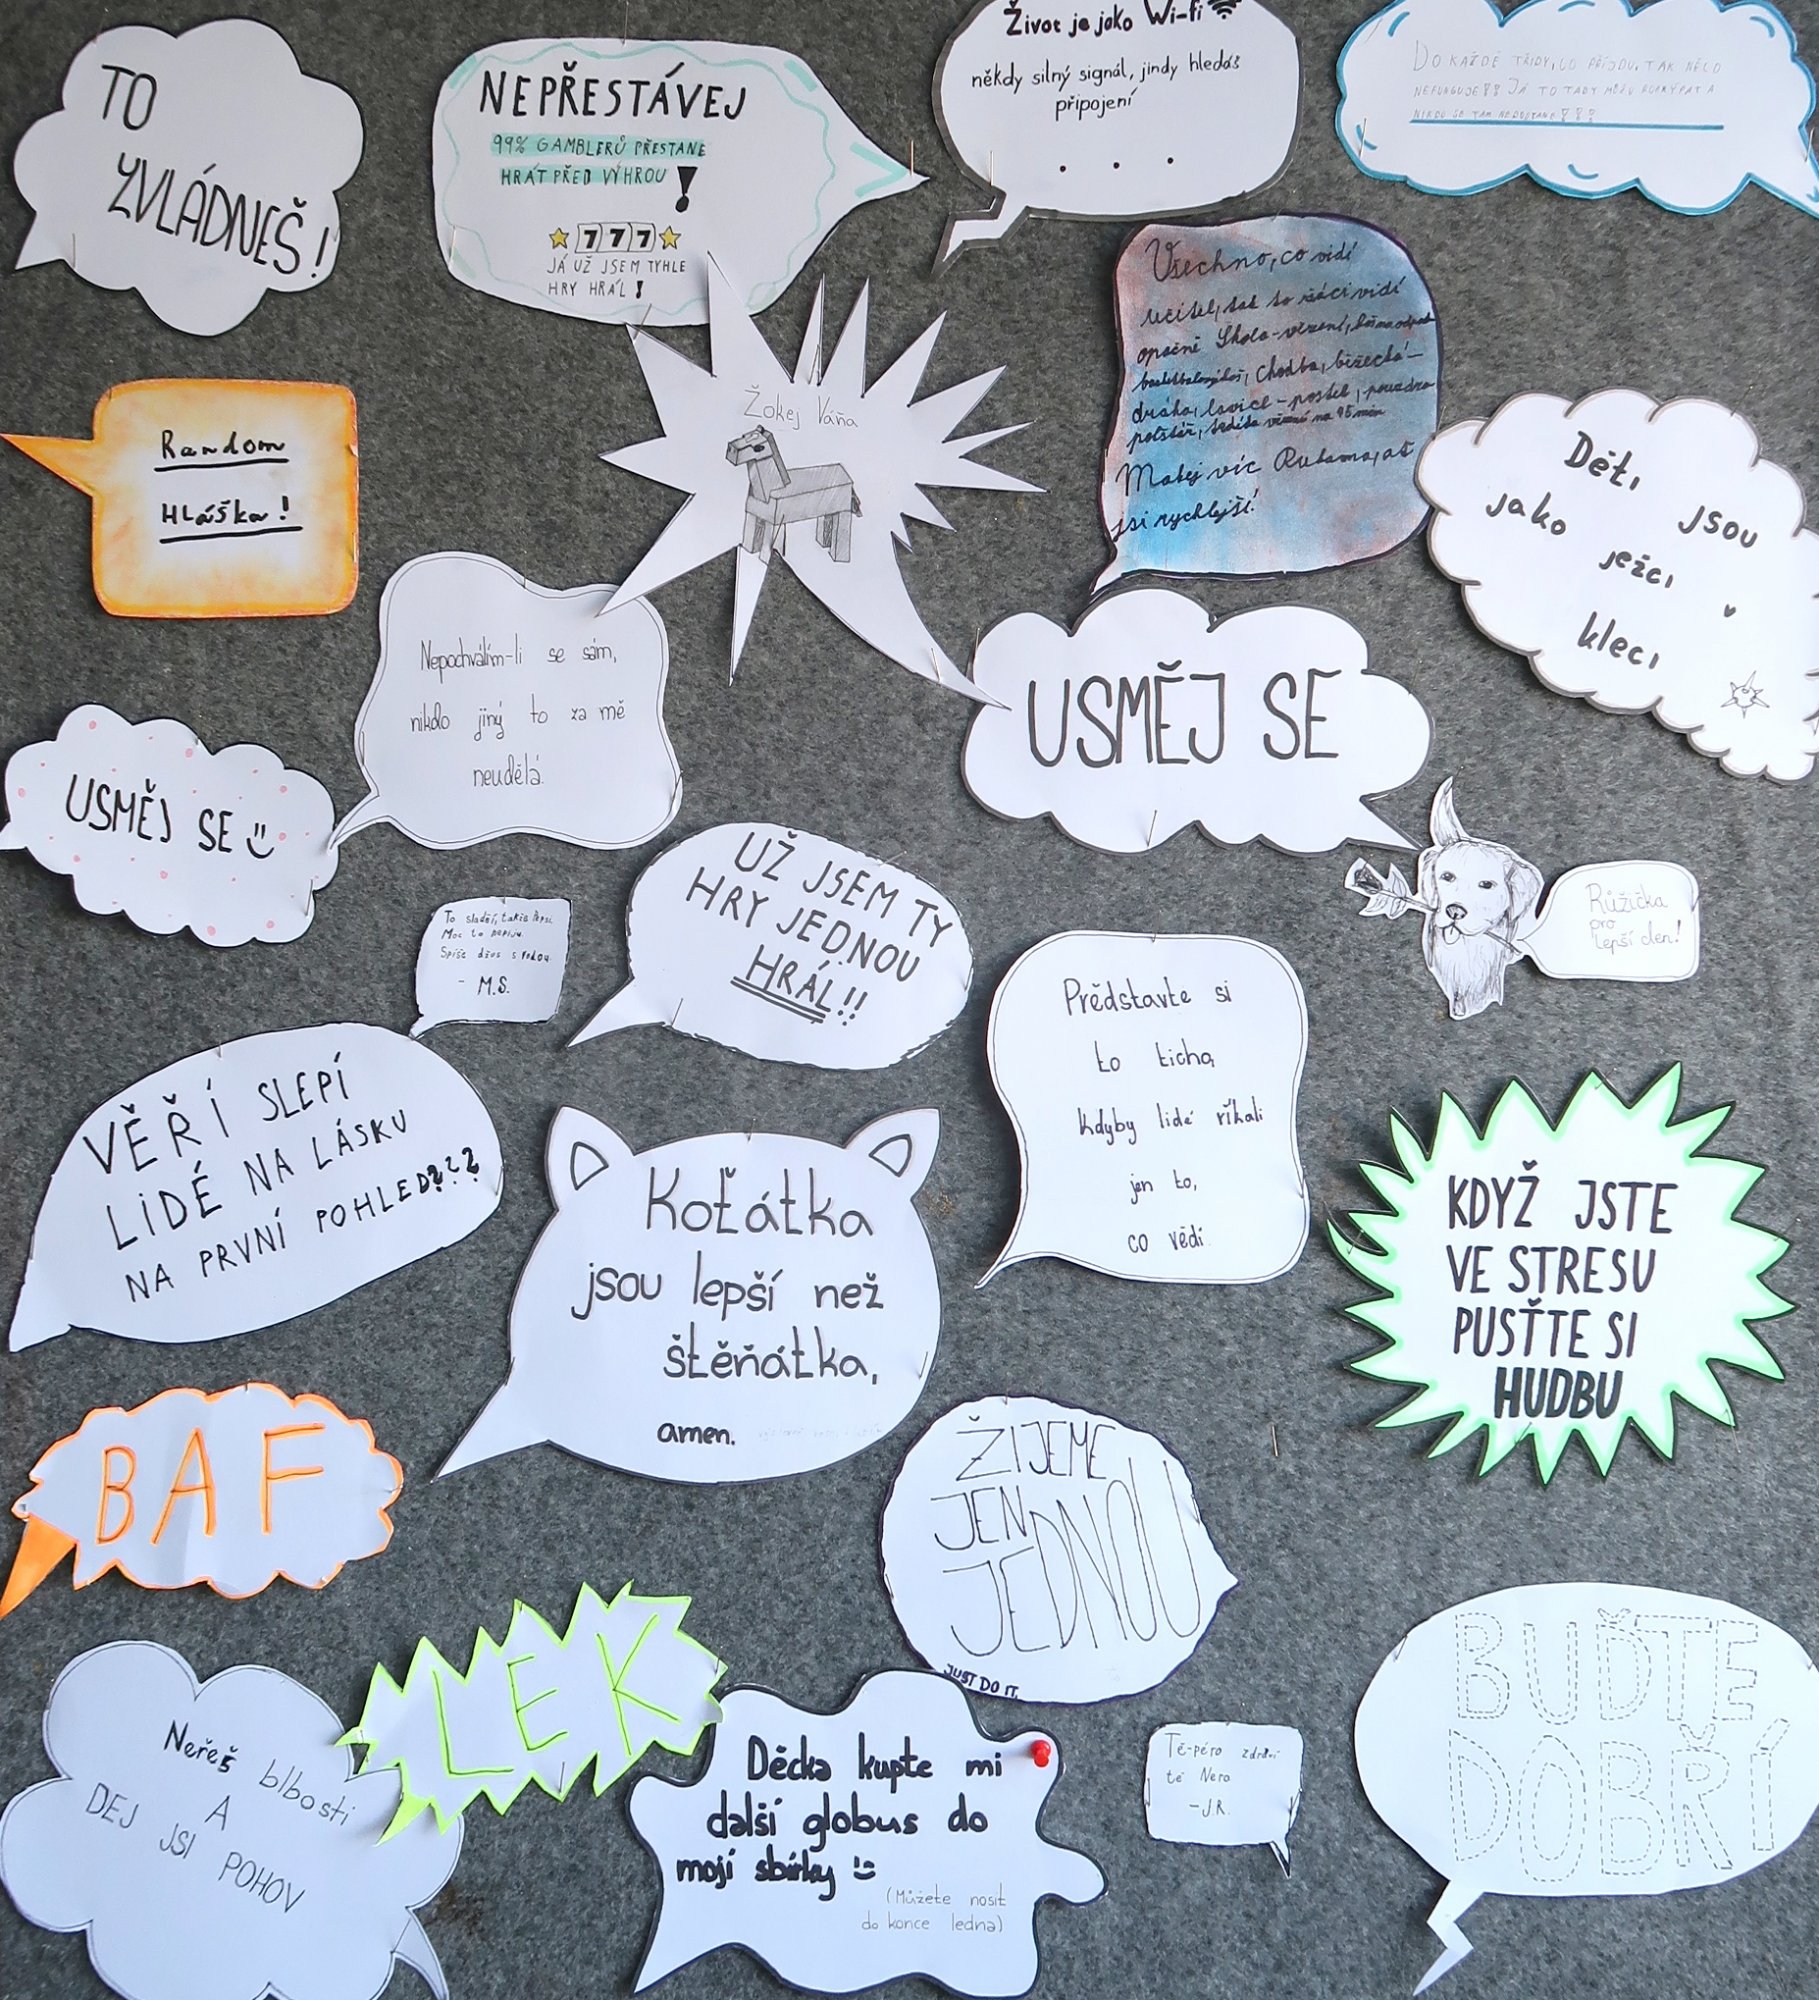 TO
ZVLÁDNEŠ!
NEPŘESTÁVEJ
99% GAMBLERŮ PŘESTANE
HRÁT PŘED VÝHROU !
777
JÁ UŽ JSEM TYHLE
HRY HRÁL!
Život je jako Wi-fi
někdy silný signál, jindy hledáš
připojení
. . .
DO KAŽDÉ TŘÍDY, CO PŘIJDU, TAK NĚCO
NEFUNGUJE!! JÁ TO TADY MŮŽU A
NIKDO SE TAM NEDOSTANE!!!
Všechno, co vidí
učitel, tak to žáci vidí
opačně Škola-vězení,
basketbalovýkoš, chodba, běžecká-
dráha, lavice-postel, pouzdro
polštář, na 45 min
Makej víc Rutamo, ať
jsi rychlejší!
Random
Hláška!
Žokej Váňa
Děti jsou
jako ježci v
kleci
Nepochválím-li se sám,
nikdo jiný to za mě
neudělá.
USMĚJ SE
USMĚJ SE
Růžička
pro
lepší den!
To sladší, takže Pepsi.
Moc to nepiju.
Spíše džus s vodou.
- M.S.
UŽ JSEM TY
HRY JEDNOU
HRÁL!!
Prědstavte si
to ticho,
kdyby lidé říkali
jen to,
co vědí.
VĚŘÍ SLEPÍ
LIDÉ NA LÁSKU
NA PRVNÍ POHLED???
Koťátka
jsou lepší než
štěňátka,
amen.
KDYŽ JSTE
VE STRESU
PUSŤTE SI
HUDBU
BAF
ŽIJEME
JEN
JEDNOU
JUST DO IT.
LEK
BUĎTE
DOBŘÍ
Neřeš blbosti
A
DEJ JSI POHOV
Děcka kupte mi
další globus do
mojí sbírky
(Můžete nosit
do konce ledna)
Tě-péro zdraví
tě Nero
-J.R.